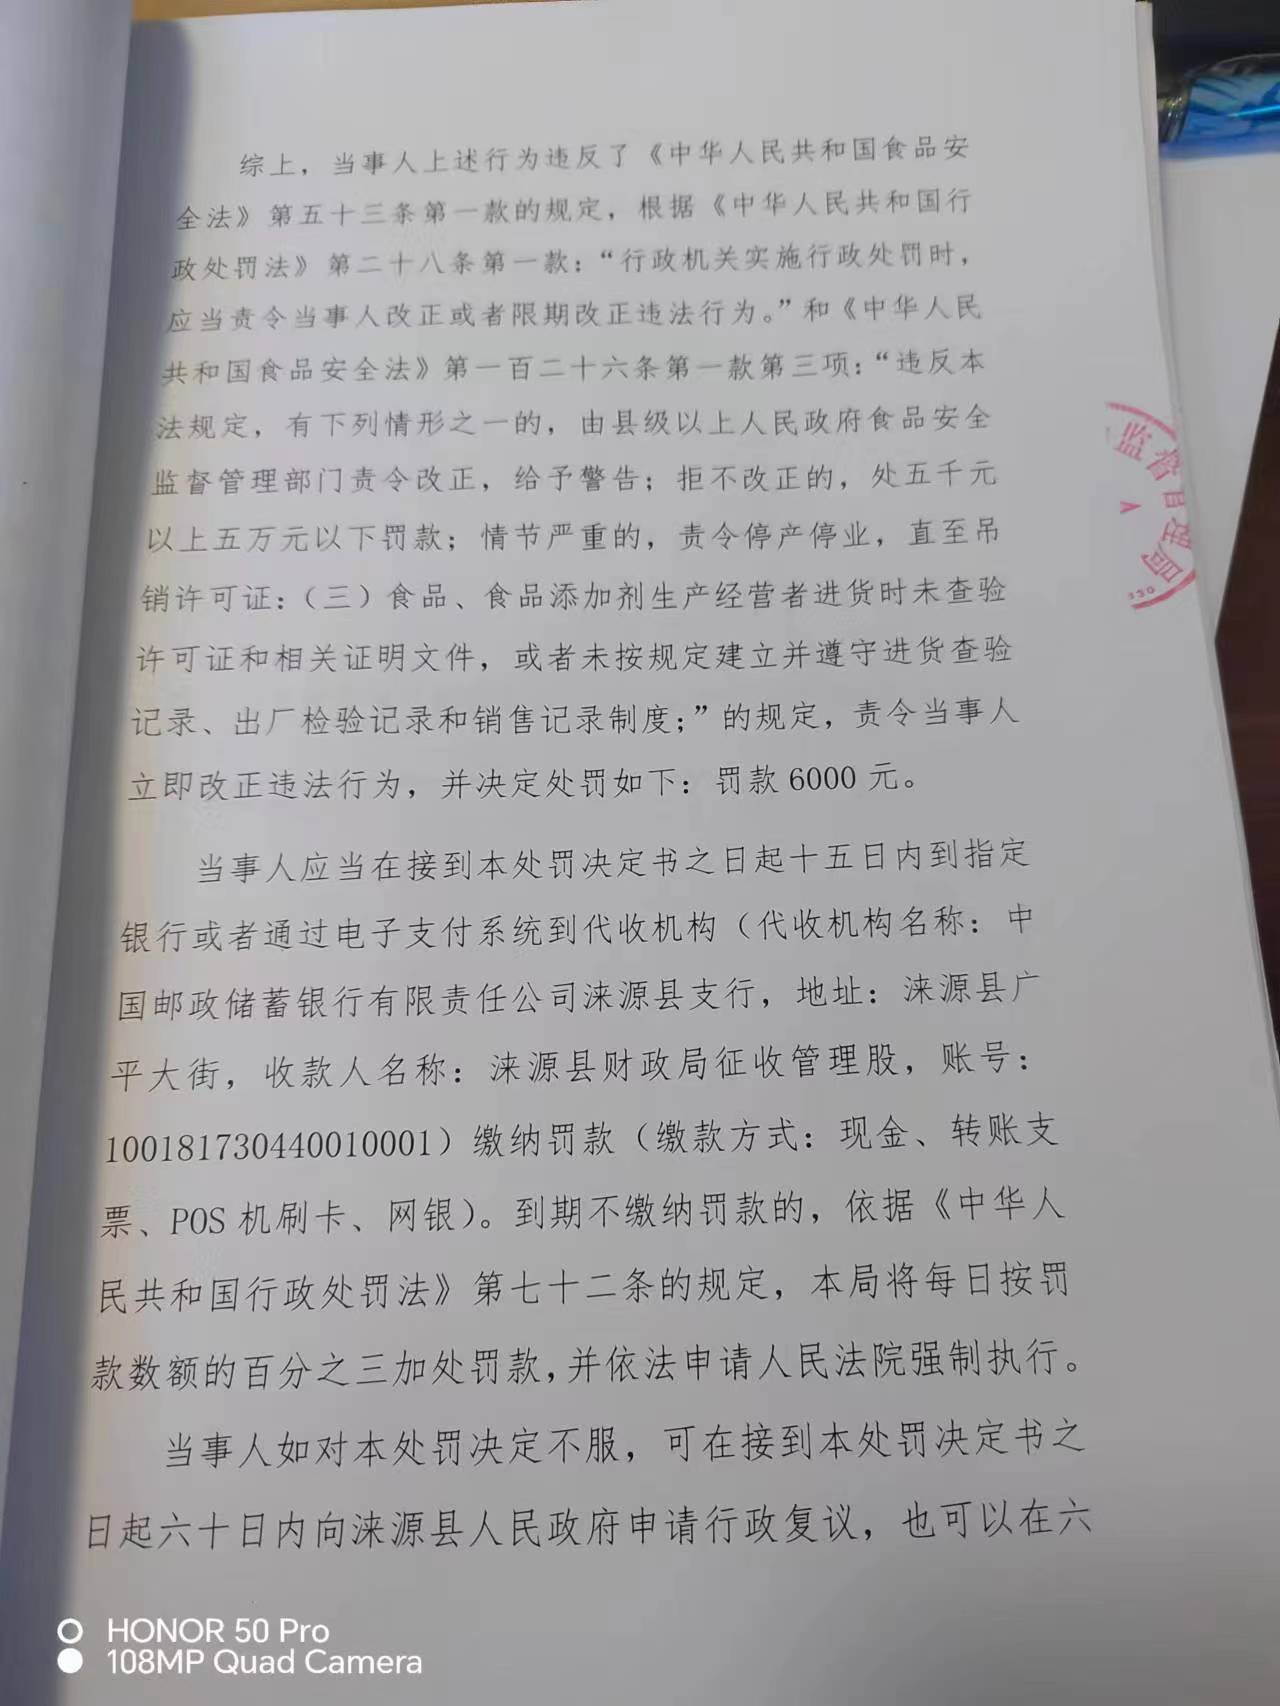 综上，当事人上述行为违反了《中华人民共和国食品安
全法》第五十三条第一款的规定，根据《中华人民共和国行
政处罚法》第二十八条第一款：“行政机关实施行政处罚时，
应当责令当事人改正或者限期改正违法行为。”和《中华人民
共和国食品安全法》第一百二十六条第一款第三项：“违反本
法规定，有下列情形之一的，由县级以上人民政府食品安全
监督管理部门责令改正，给予警告；拒不改正的，处五千元
以上五万元以下罚款；情节严重的，责令停产停业，直至吊
销许可证：（三）食品、食品添加剂生产经营者进货时未查验
许可证和相关证明文件，或者未按规定建立并遵守进货查验
记录、出厂检验记录和销售记录制度；”的规定，责令当事人
立即改正违法行为，并决定处罚如下：罚款 6000 元。
当事人应当在接到本处罚决定书之日起十五日内到指定
银行或者通过电子支付系统到代收机构（代收机构名称：中
国邮政储蓄银行有限责任公司涞源县支行，地址：涞源县广
平大街，收款人名称：涞源县财政局征收管理股，账号：
100181730440010001）缴纳罚款（缴款方式：现金、转账支
票、POS 机刷卡、网银）。到期不缴纳罚款的，依据《中华人
民共和国行政处罚法》第七十二条的规定，本局将每日按罚
款数额的百分之三加处罚款，并依法申请人民法院强制执行。
当事人如对本处罚决定不服，可在接到本处罚决定书之
日起六十日内向涞源县人民政府申请行政复议，也可以在六
监督
局
330
HONOR 50 Pro
108MP Quad Camera